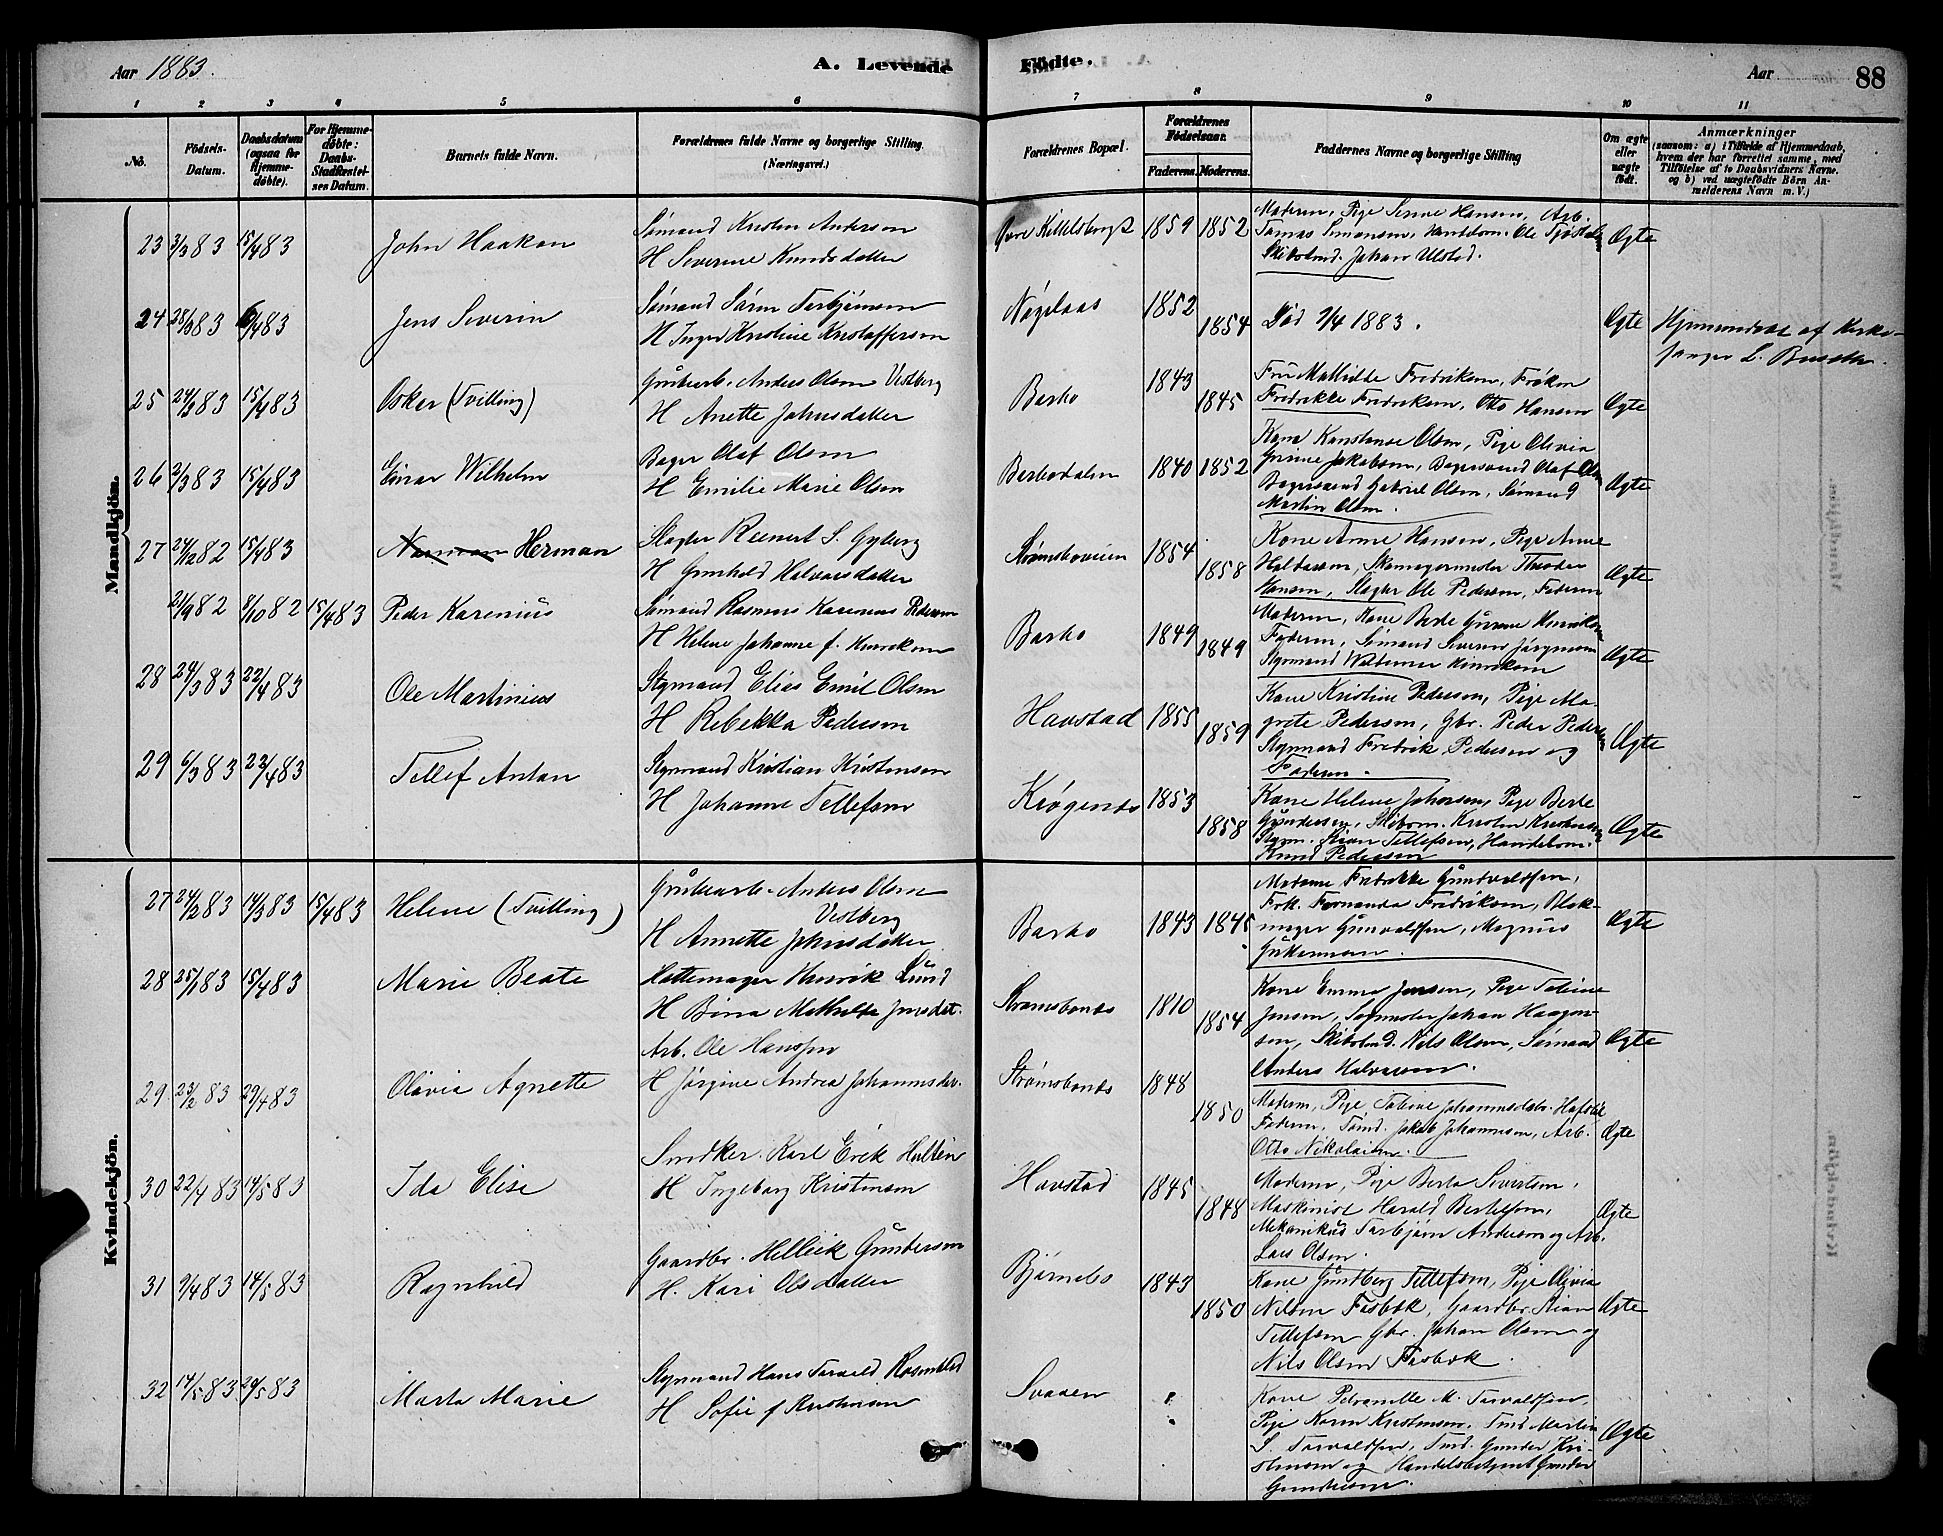 Aar 1883.
A. Levende Födte.
Aar 88
1 2 3 4 5 6 7 8 9 10 11
No.
Födsels-Datum.
Daabsdatum (ogsaa for Hjemmedöbte).
For Hjemmedöbte: Daabs-Stadfæstelses Datum.
Barnets fulde Navn.
Forældrenes fulde Navne og borgerlige Stilling.
(Næringsvei.)
Forældrenes Bopæl.
Forældrenes Födselsaar.
Faderens. Moderens.
Faddernes Navne og borgerlige Stilling
Om ægte eller uægte födt.
Anmærkninger
(saasom: a) i Tilfælde af Hjemmedaab, hvem der har forrettet samme, med Tilföielse af to Daabsvidners Navne, og b) ved uægtefödte Börn Anmelderens Navn m. V.)
Mandkjön.
23 3/3 83 15/4 83 John Haakon
Sømand Kristen Anderson
H Severine Knudsdatter
1859 1852
Moderen, Pige Hansen, Arb.
Tomas Simonsen, Ole
Skibstmd. Johan Ulstad.
Ægte
24 28/3 83 6/4 83 Jens Severin
Sømand Søren Terbjørnsen
H Inger Kristine Kristoffersen
1852
1854
Død 9/4 1883.
Ægte
Hjemmedøbt af Kirke-
sanger L.
25 24/2 83 15/4 83 Oskar (Tvilling)
Anders Olsen Vestberg
H Anette Johnsdatter
Barbo
1843
1845
Fru Mathilde Fredriksen, Frøken
Fredrikke Fredriksen, Otto Hansen
Ægte
26 2/3 83 15/4 83 Einar Wilhelm
Bager Olaf Olsen
H Emilie Marie Olsen
Barbodalen
1840 1852
Kone Konstanse Olsen, Pige Olivia
Jakobsen, Bagersvend Olaf Olsen
Bagersvend Gabriel Olsen, Sømand
Martin Olsen.
Ægte
27 24/12 82 15/4 83 Herman
Slagter Reinert S. Gyberg
H Gunhild Halvorsdatter
Strømsboveien
1854
1858
Kone Anne Hansen, Pige Anne
Skomagermester Theodor
Hansen, Slagter Ole Pedersen, Faderen
Ægte
21/9 82 8/10 82 15/4 83 Peder Karenius
Sømand Rasmus Karenius Pedersen
H Helene Johanne f. Henriksen
Barbo
1849
1849
Moderen, Kone Berte Henriksen
Faderen, Sømand Severin Jørgensen
Styrmand Henriksen
Ægte
28 24/3 83 22/4 83 Ole Martinius
Styrmand Elias Emil Olsen
H Rebekka Pedersen
Havstad
1855
1859
Kone Kristine Pedersen, Pige Ma-
grete Pedersen, Gbr. Peder Pedersen
Styrmand Fredrik Pedersen og
Faderen.
Ægte
29 6/3 83 22/4 83 Tellef Anton
Styrmand Kristian Kristensen
H Johanne Tellefsen
Krøgenes
1853
1858
Kone Helene Johnsen, Pige Berte
Gundersen, Skibstm. Kristen Kristensen
Styrm. Tellefsen, Handelsm.
Knud Pedersen
Ægte
Kvindekjön.
27 24/2 83 14/3 83 15/4 83 Helene (Tvilling)
Anders Olsen
Vestberg
H Annette Johnsdatter
Barbo
1843 1845
Madame Fredrikke Gundvaldsen,
Frk. Fernanda Fredriksen, Blok-
mager Gunvaldsen, Magnus
Ægte
28 25/1 83 15/4 83 Marie Beate
Hattemager Henrik Lund
H Mathilde Jensdat.
Strømsbonæs
1810
1854
Kone Emma Jensen, Pige Tobine
Jensen, Johan Haagen-
sen, Skibstmd. Nils Olsen, Sømand
Anders Halvorsen.
Ægte
29 23/2 83 29/4 83 Olivia Agnette
Arb. Ole Hanssen
H Jørgine Andrea Johannesdtr.
Strømsbonæs
1848
1850
Moderen, Pige Tobine Johannesdtr.
Faderen, Tømd. Jakob Johannesen, Arb.
Otto Nikolaisen.
Ægte
30 22/4 83 14/5 83 Ida Elise
Karl Erik Hulten
H Ingeborg Kristensen
Havstad
1845
1848
Moderen, Pige Berta Sivertsen,
Maskinist Harald Bertelsen,
Mekanikus Torbjørn Andersen og Arb.
Lars Olsen.
Ægte
31 9/4 83 14/5 83 Ragnhild
Gaardbr. Helleik Gundersen
H. Kari Olsdatter
Bjørnebo
1843
1850
Kone Gundborg Tellefsen, Pige Olivia
Nilsen Fasbæk, Gaardbr.
Tellefsen Gbr. Johan Olsen og
Nils Olsen Fasbæk.
Ægte
32 14/5 83 29/5 83 Marta Marie
Styrmand Hans Torvald Rosenblad
H Sofie f Kristensen
Kone Petronelle M. Torvaldsen,
Pige Karen Kristensen, Tmd Martin
S. Torvaldsen, Tmd. Gunder Kri-
stensen og Handelsbetjent Gunder
Gundersen.
Ægte